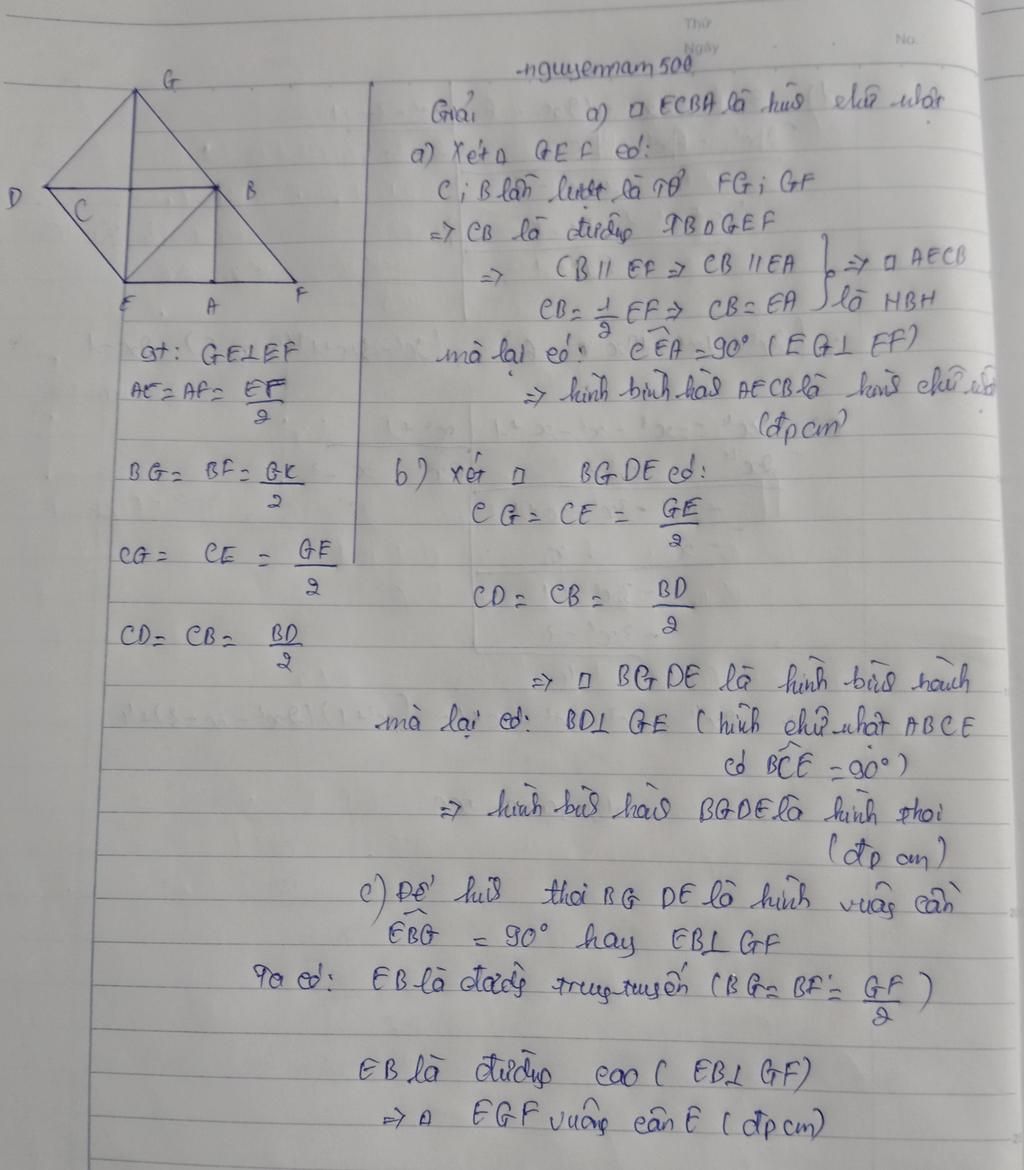 Thứ
Ngày
No.
nguyennam500
G
D
C
B
E
A
F
gt: GE⊥EF
AE = AF = EF/2
BG = BF = GK/2
CG = CE = GE/2
CD = CB = BD/2
Giải a) □ ECBA là hữ chữ nhật
a) Xét △ GEF có:
C; B lần lượt là TĐ FG; GF
=> CB là đường TB △ GEF
=> CB // EF => CB // EA } => □ AECB
CB = 1/2 EF => CB = EA } là HBH
mà lại có: CÊA = 90° (EG⊥ EF)
=> hình bình hàh AECB là hình chữ nhật
(đpcm)
b) Xét □ BGDE có:
CG = CE = GE/2
CD = CB = BD/2
=> □ BGDE là hình bình hành
mà lại có: BD⊥ GE (hình chữ nhật ABCE
có BĈE = 90°)
=> hình bình hàh BGDE là hình thoi
(đpcm)
c) Để hình thoi BG DE là hình vuông cần
EBG = 90° hay EB⊥ GF
Ta có: EB là đường trung tuyến (BG = BF = GF/2)
EB là đường cao ( EB⊥ GF)
=> △ EGF vuông cân E (đpcm)